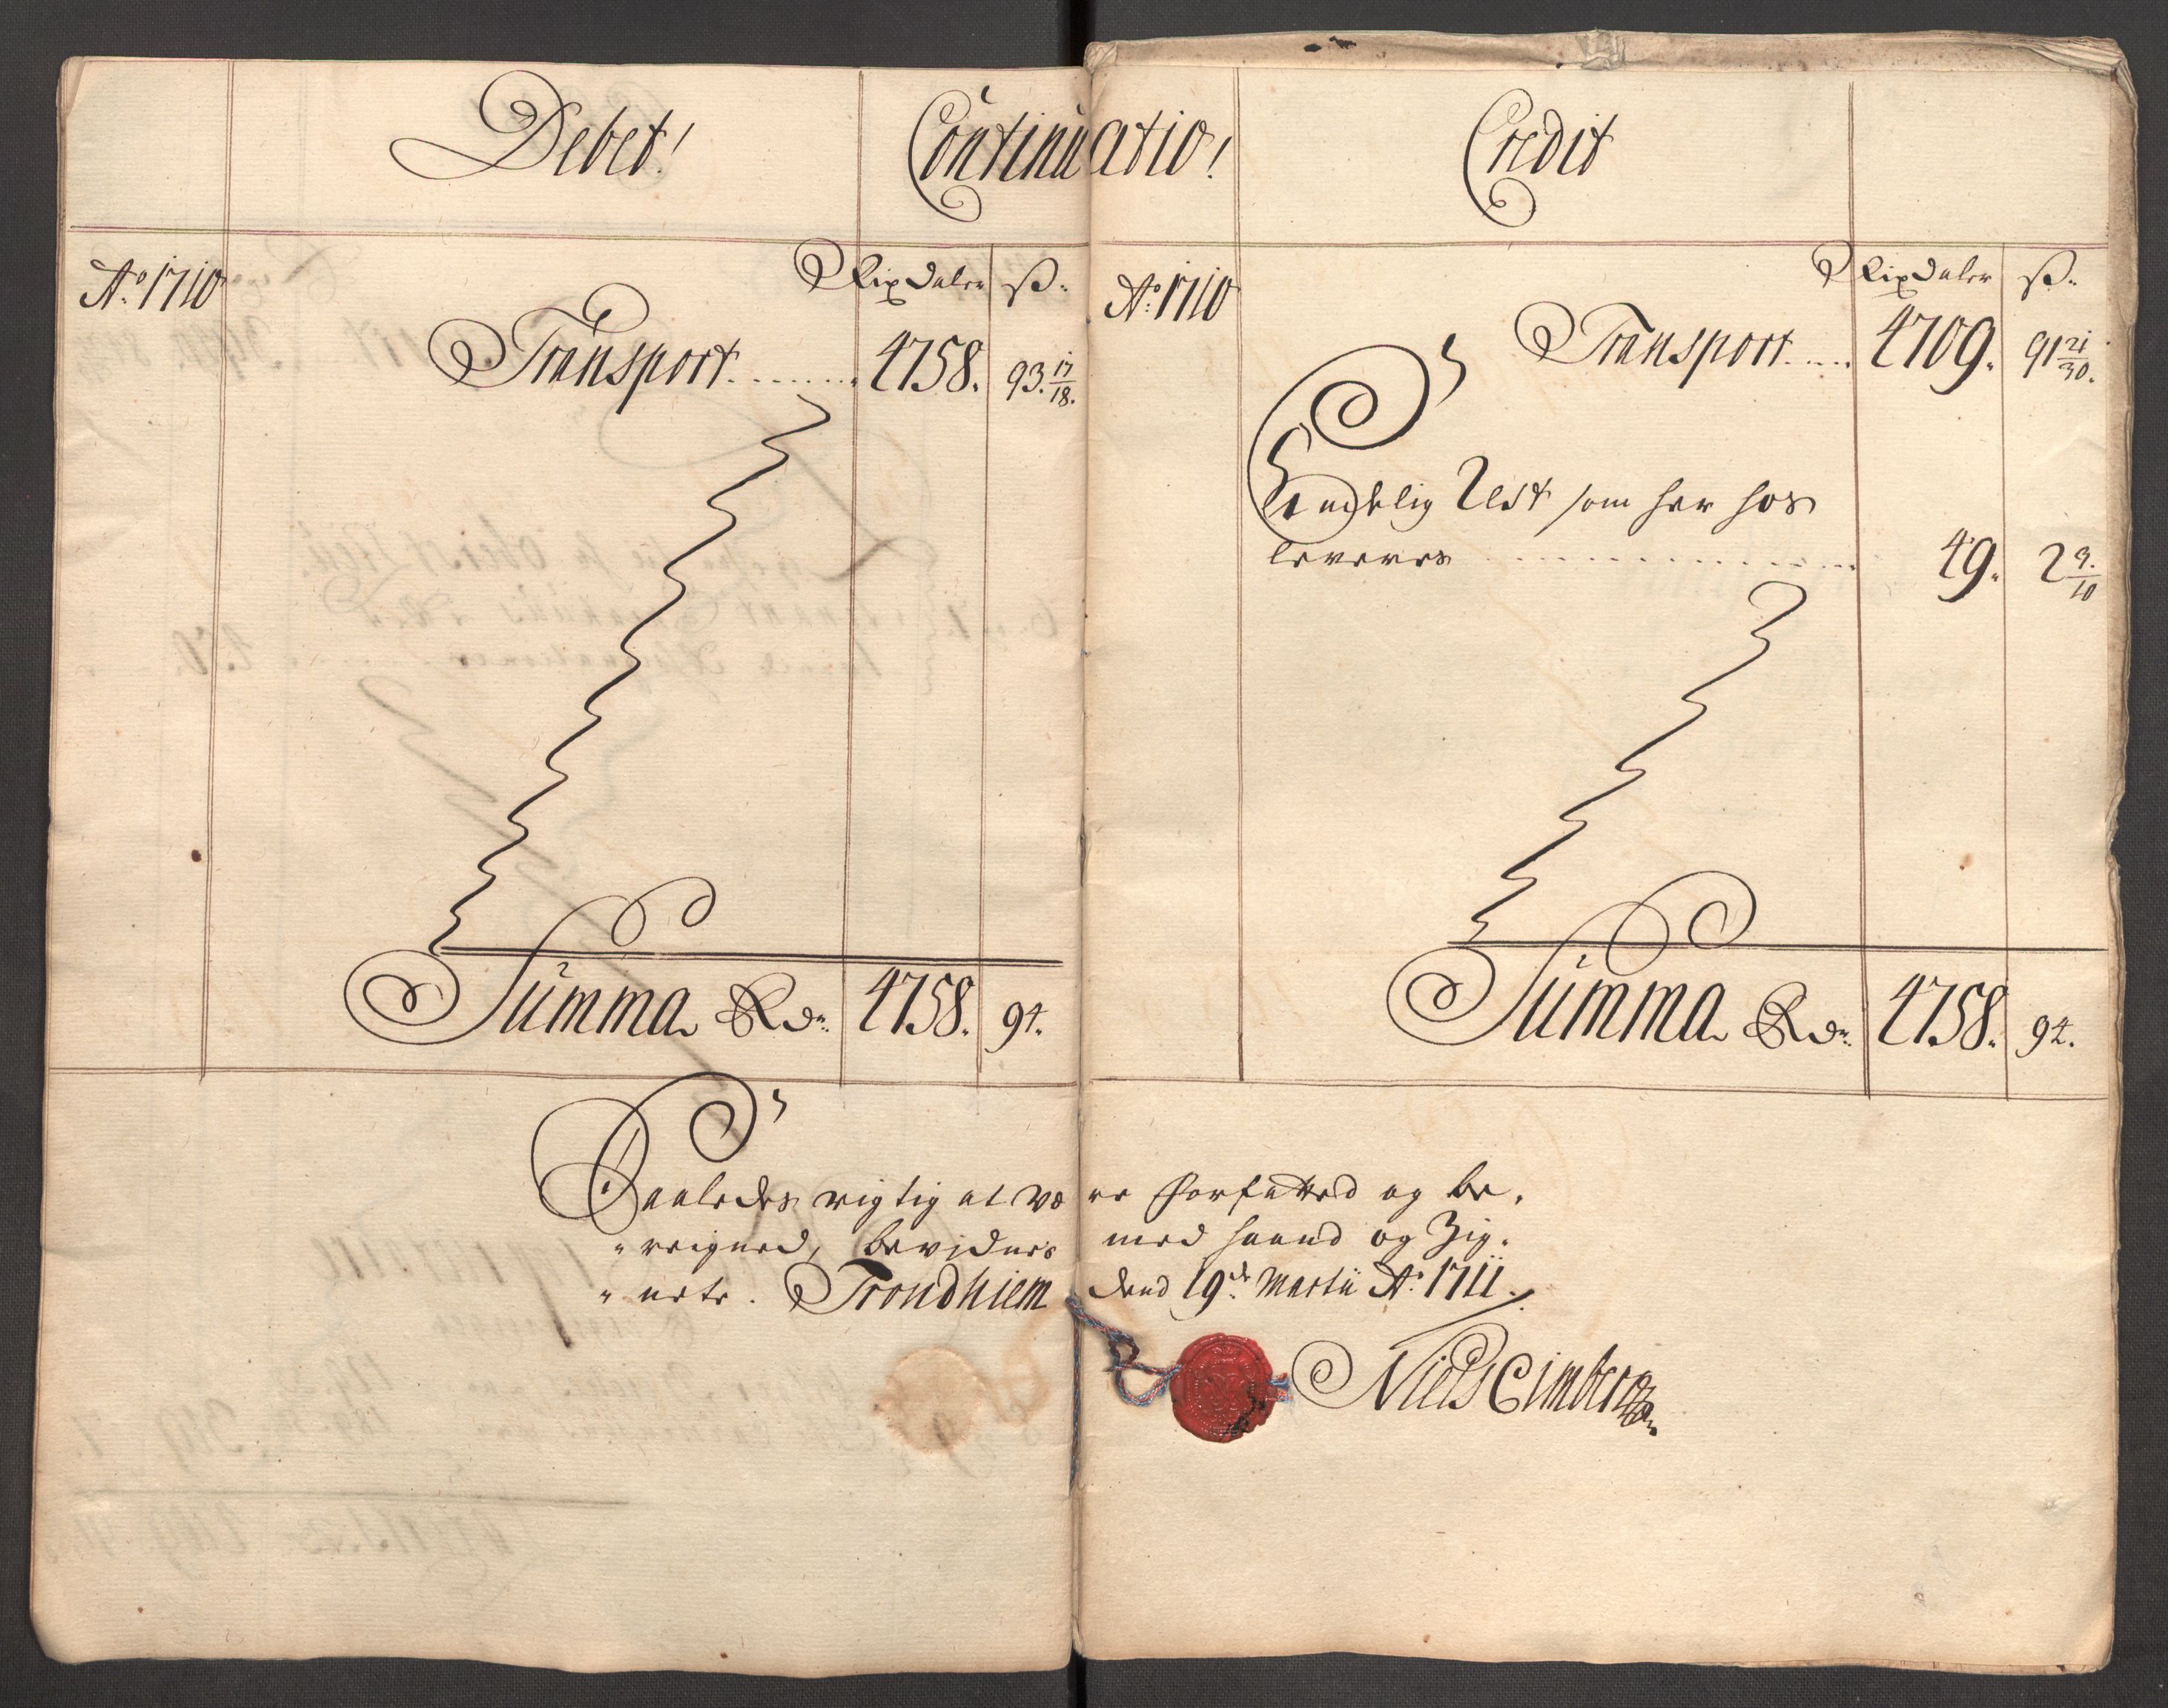 Debet! Continuatio! Credit
Ao. 1710 Rixdaler ß.
Transport ........ 4758. 93. 17/18.
Summa Rdr. 4758. 94.
Ao. 1710 Rixdaler ß.
Transport ..... 4709. 91 21/30.
Endelig Rest som her hos
leveres .............. 49. 2 9/10
Summa Rdr. 4758. 94.
Saaledes rigtig at være forfatted og be-
reigned, bevidnes med haand og Zig-
nete. Trondhiem dend 19de Martii Ao. 1711.
Niels Cimber